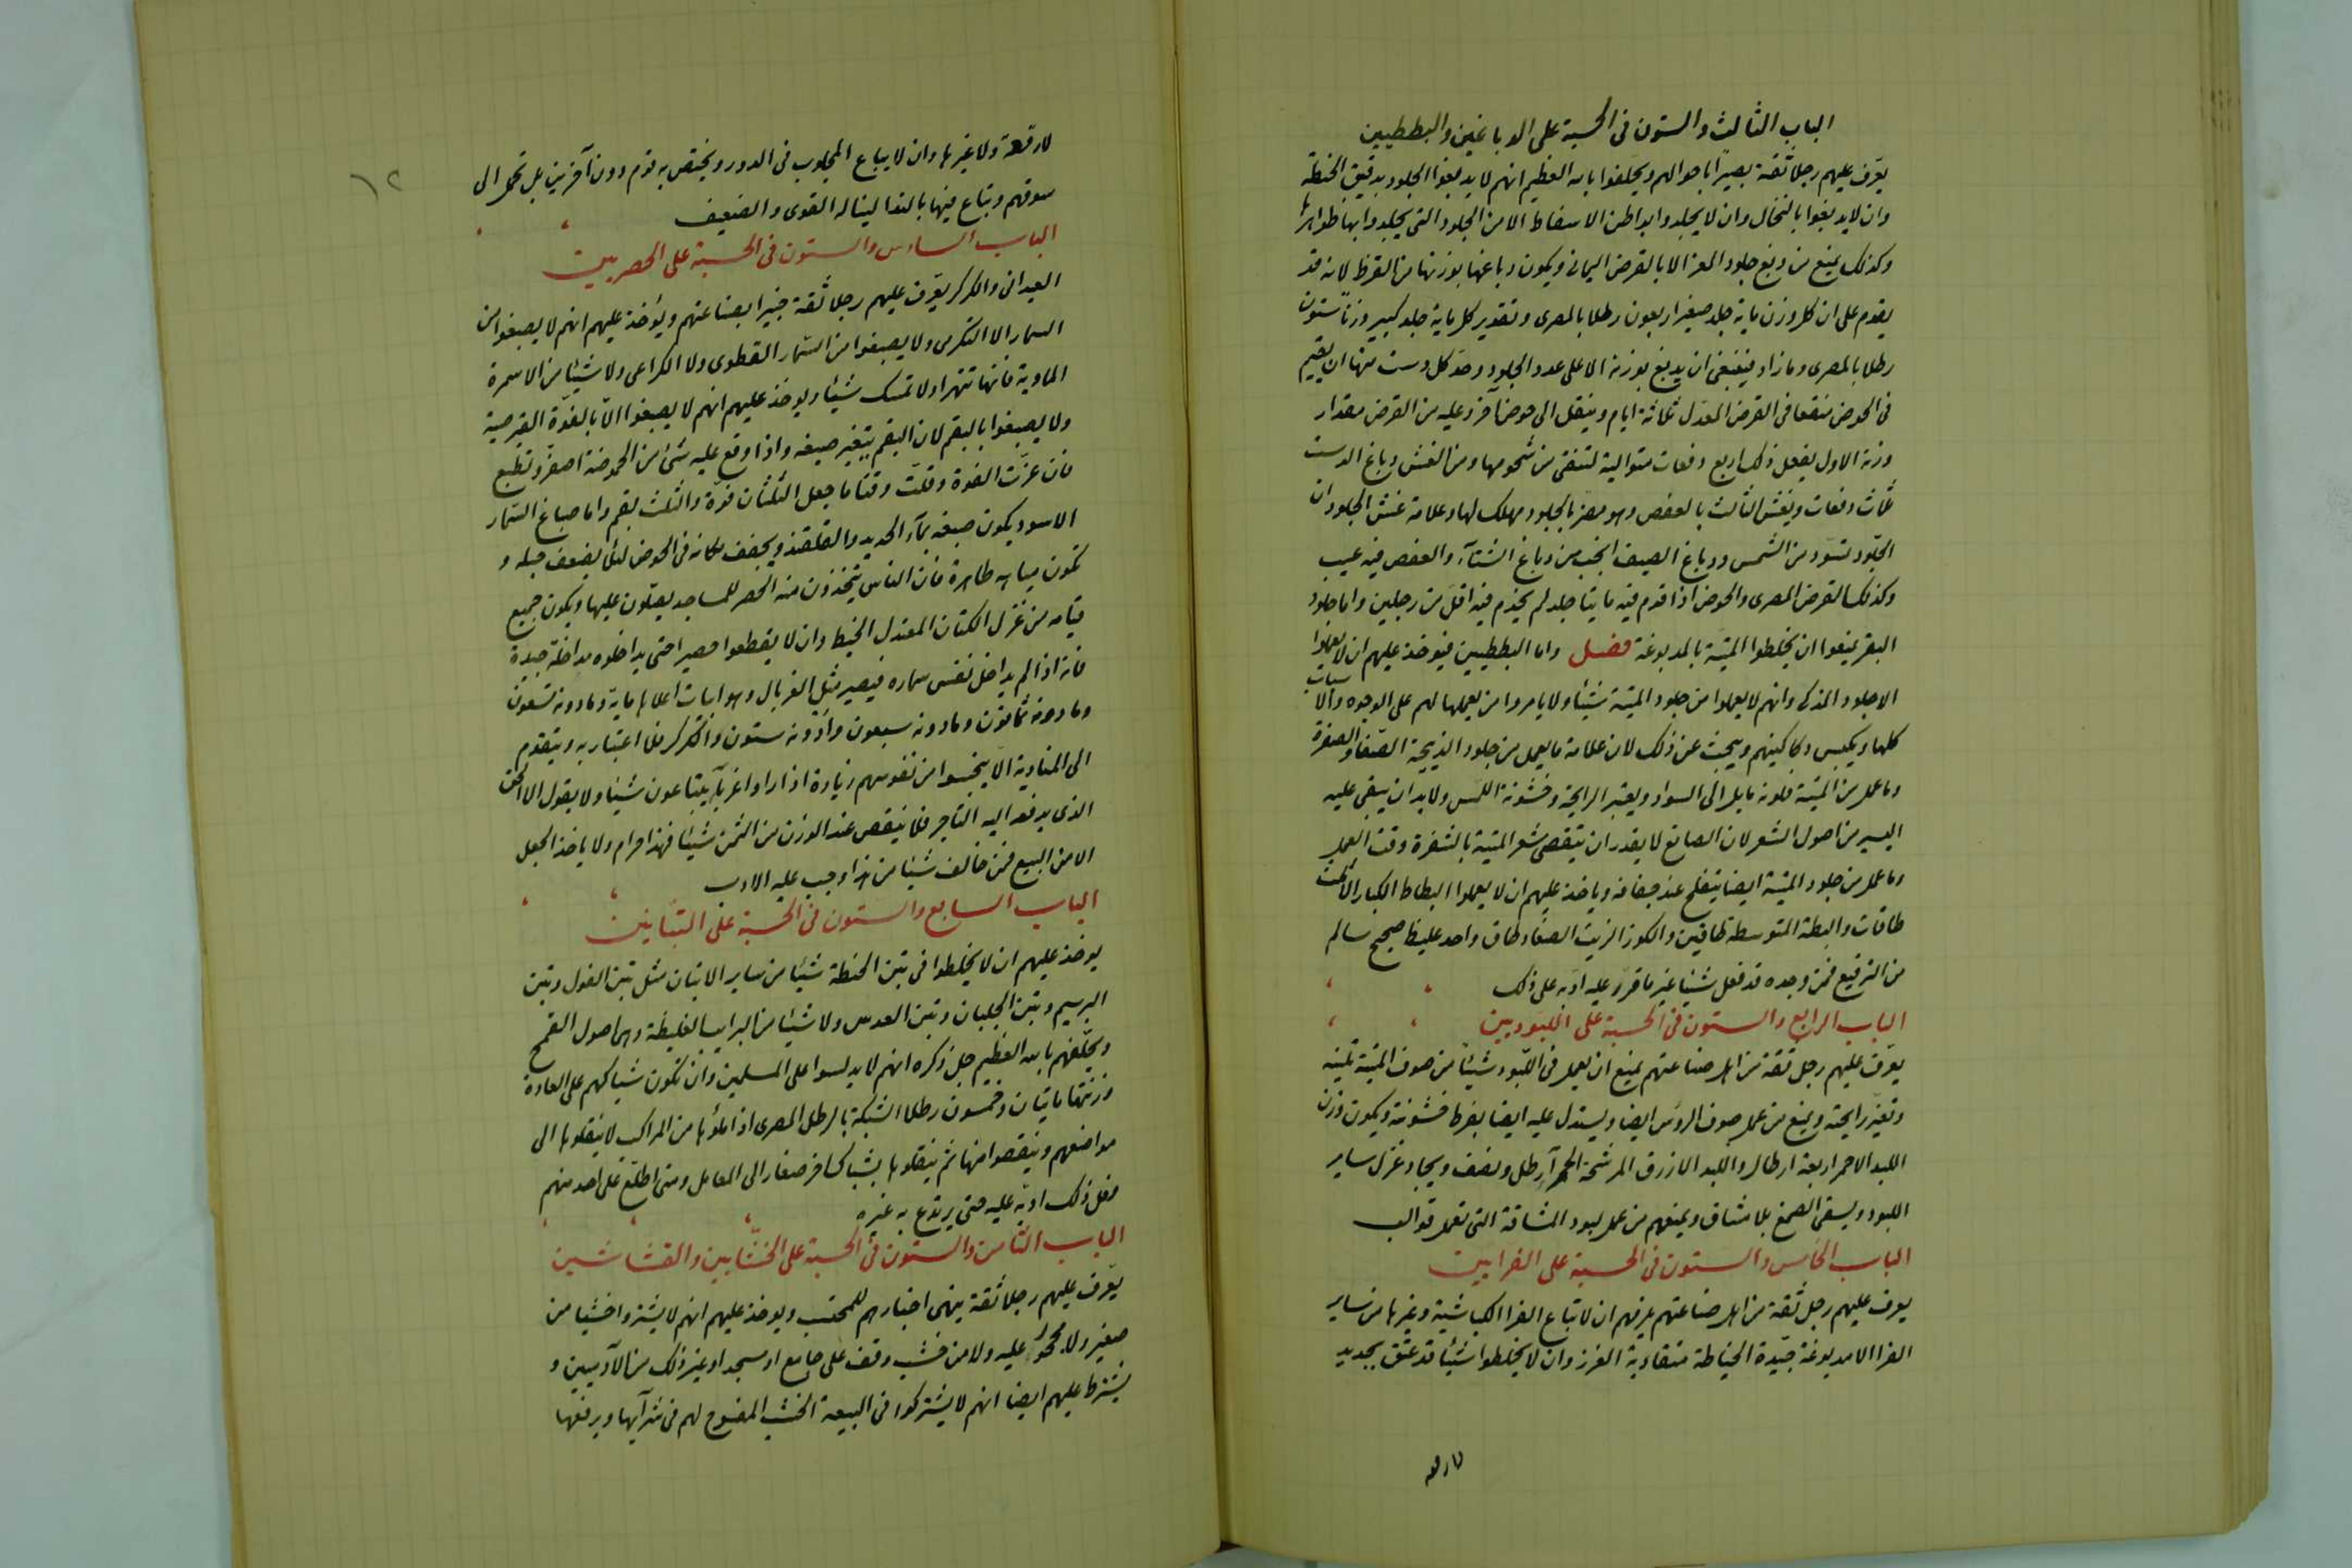 الباب الثالث والستون فى الحسبة على الدباغين والبططيين
يعرف عليهم رجلا ثقة بصيرا باحوالهم ويحلفوا بالله العظيم انهم لا يدبغوا الجلود بدقيق الحنطة
وان لا يدبغوا بالنخال وان لا يجلدوا بداطن الاسفاط الا من الجلود التى يجلدوا بها ظواهرها
وكذلك يمنع من دبغ جلود المعز الا بالقرض اليمانى ويكون دباغها بوزنها من القرظ لانه قد
يقدم على ان كل وزن ماية جلد صغير اربعون رطلا بالمصرى وتقدير كل ماية جلد كبير وزنا ستون
رطلا بالمصرى وما زاد فينبغى ان يدبغ بوزنه الا على عدد الجلود وحد كل دست منها ان يقيم
فى الحوض منقعا فى القرض المعدل ثلاثة ايام وينقل الى حوض آخر وعليه من القرض مقدار
وزنه الاول يفعل ذلك اربع دفعات متوالية لتنقى من شحومها ومن الغش دباغ الدست
ثلاث دفعات ويغش الثالث بالعفص وهو مضر بالجلود مهلك لها وعلامة غش الجلود ان
الجلود تسود من الشمس ودباغ الصيف انجب من دباغ الشتآء والعفص فيه عيب
وكذلك القرض المصرى والحوض اذا قدم فيه مايتا جلد لم يخدم فيه اقل من رجلين واما جلود
البقر يمنعوا ان يخلطوا الميتة بالمدبوغة فصل واما البططيين فيوخذ عليهم ان لا يعملوا
الا جلود المذكى وانهم لا يعملوا من جلود الميتة شيئا ولا يامروا من يعملها لهم على الوجوه والاسباب
كلها ويكبس دكاكينهم ويبحث عن ذلك لان علامة ما يعمل من جلود الذبيحة الصفا والصفرة
وما عمل من الميتة فلونه مايل الى السواد ويعتبر الرايحة وخشونة اللمس ولا بد ان يبقى عليه
اليسير من اصول الشعر لان الصانع لا يقدر ان يتقصى شعر الميتة بالشفرة وقت العمل
وما عمل من جلود الميتة ايضا يتقلح عند جفافه وياخذ عليهم ان لا يعملوا البطاط الكبار الا ثلاث
طاقات والبطة المتوسطة طاقين والكوز الزيت الصغار طاق واحد غليظا صحيح سالم
من الترقيع فمن وجده قد فعل شيئا غير ما قرر عليه ادبه على ذلك
الباب الرابع والستون فى الحسبة على اللبوديين
يعرف عليهم رجل ثقة من اهل صناعتهم يمنع ان يعمل فى اللبود شيئا من صوف الميتة
وتغير رايحته ويمنع من عمل صوف الروس ايضا ويستدل عليه ايضا بفرط خشونة ويكون وزن
اللبد الاحمر اربعة ارطال واللبد الازرق المرشحة الحمرآ رطل ونصف ويجاد غزل ساير
اللبود ويسقى الصمغ بلا مشاق ويمنعهم من عمل لبود المشاقة التى تعمل قوالب
الباب الخامس والستون فى الحسبة على الفرايين
يعرف عليهم رجل ثقة من اهل صناعتهم يعرفهم ان لا تباع الفرا الكباشية وغيرها من ساير
الفرا الا مدبوغة جيدة الخياطة متقاربة الغرز وان لا يخلطوا شيئا قد عتق بجديد
لا رقعة
١٢
لا رقعة ولا غيرها وان لا يباع المجلوب فى الدور ويختص به قوم دون آخرين بل تحمل الى
سوقهم وتباع فيها بالندا ليناله القوى والضعيف
الباب السادس والستون فى الحسبة على الحصريين
العبدانى والكركر يعرف عليهم رجلا ثقة خبيرا بصناعتهم ويؤخذ عليهم انهم لا يصبغوا من
السمار الا التكرمى ولا يصبغوا من السمار القطوى ولا الكراعى ولا شيئا من الاسمرة
الماوية فانها تتهرا ولا تمسك شيئا ويوخذ عليهم انهم لا يصبغوا الا بالفوة القبرصية
ولا يصبغوا بالبقم لان البقم يتغير صبغه واذا وقع عليه شئ من الحموضة اصفر وتطبع
فان عزت الفوة وقلت وقتا ما جعل الثلثان فوة والثلث بقم واما صباغ السمار
الاسود يكون صبغه بمآء الحديد والقلقند ويجفف مكانه فى الحوض لئلا يضعف حبله و
تكون مياهه طاهرة فان الناس يتخذون منه الحصر للمساجد يصلون عليها ويكون جميع
قيامه من غزل الكتان المعتدل الخيط وان لا يقطعوا حصيرا حتى يداخلوه مداخلة جيدة
فانه اذا لم يداخل نقس سماره فيصير مثل الغربال وهو ابيات اعلاها ماية وما دونه تسعون
وما دونه ثمانون وما دونه سبعون وما دونه ستون والكركر فلا اعتبار به ويتقدم
الى المنادية الا يبخسوا من نفوسهم زيادة اذا راوا غربآء يبتاعون شيئا ولا يقول الا الحق
الذى يدفعه اليه التاجر فلا ينقص عند الوزن من الثمن شيئا فهذا حرام ولا ياخذ الجعل
الا من البيع فمن خالف شيئا من هذا وجب عليه الادب
الباب السابع والستون فى الحسبة على التبانين
يوخذ عليهم ان لا يخلطوا فى تبن الحنطة شيئا من ساير الاتبان مثل تبن الفول وتبن
البرسيم وتبن الجلبان وتبن العدس ولا شيئا من الغليظة وهى اصول القمح
ويحلفهم بالله العظيم جل ذكره انهم لا يدلسوا على المسلمين وان تكون شباكهم على العادة
وزنها مايتان وخمسون رطلا الشبكة بالرطل المصرى اذا ملؤها من المراكب لا ينقلوها الى
مواضعهم وينقصوا منها ثم ينقلوها بشباك اخر صغار الى المعامل ومتى اطلع على احد منهم
فعل ذلك ادبه عليه حتى يرتدع به غيره
الباب الثامن والستون فى الحسبة على الخشابين والقشاشين
يعرف عليهم رجلا ثقة ينهى اخبارهم للمحتسب ويوخذ عليهم انهم لا يشتروا خشبا من
صغير ولا محجور عليه ولا من خشب وقف على جامع او مسجد او غير ذلك من الآدميين و
يشترط عليهم ايضا انهم لا يشتركوا فى البيعة الخشب المفسوح لهم فى شرآيها ويرفعها